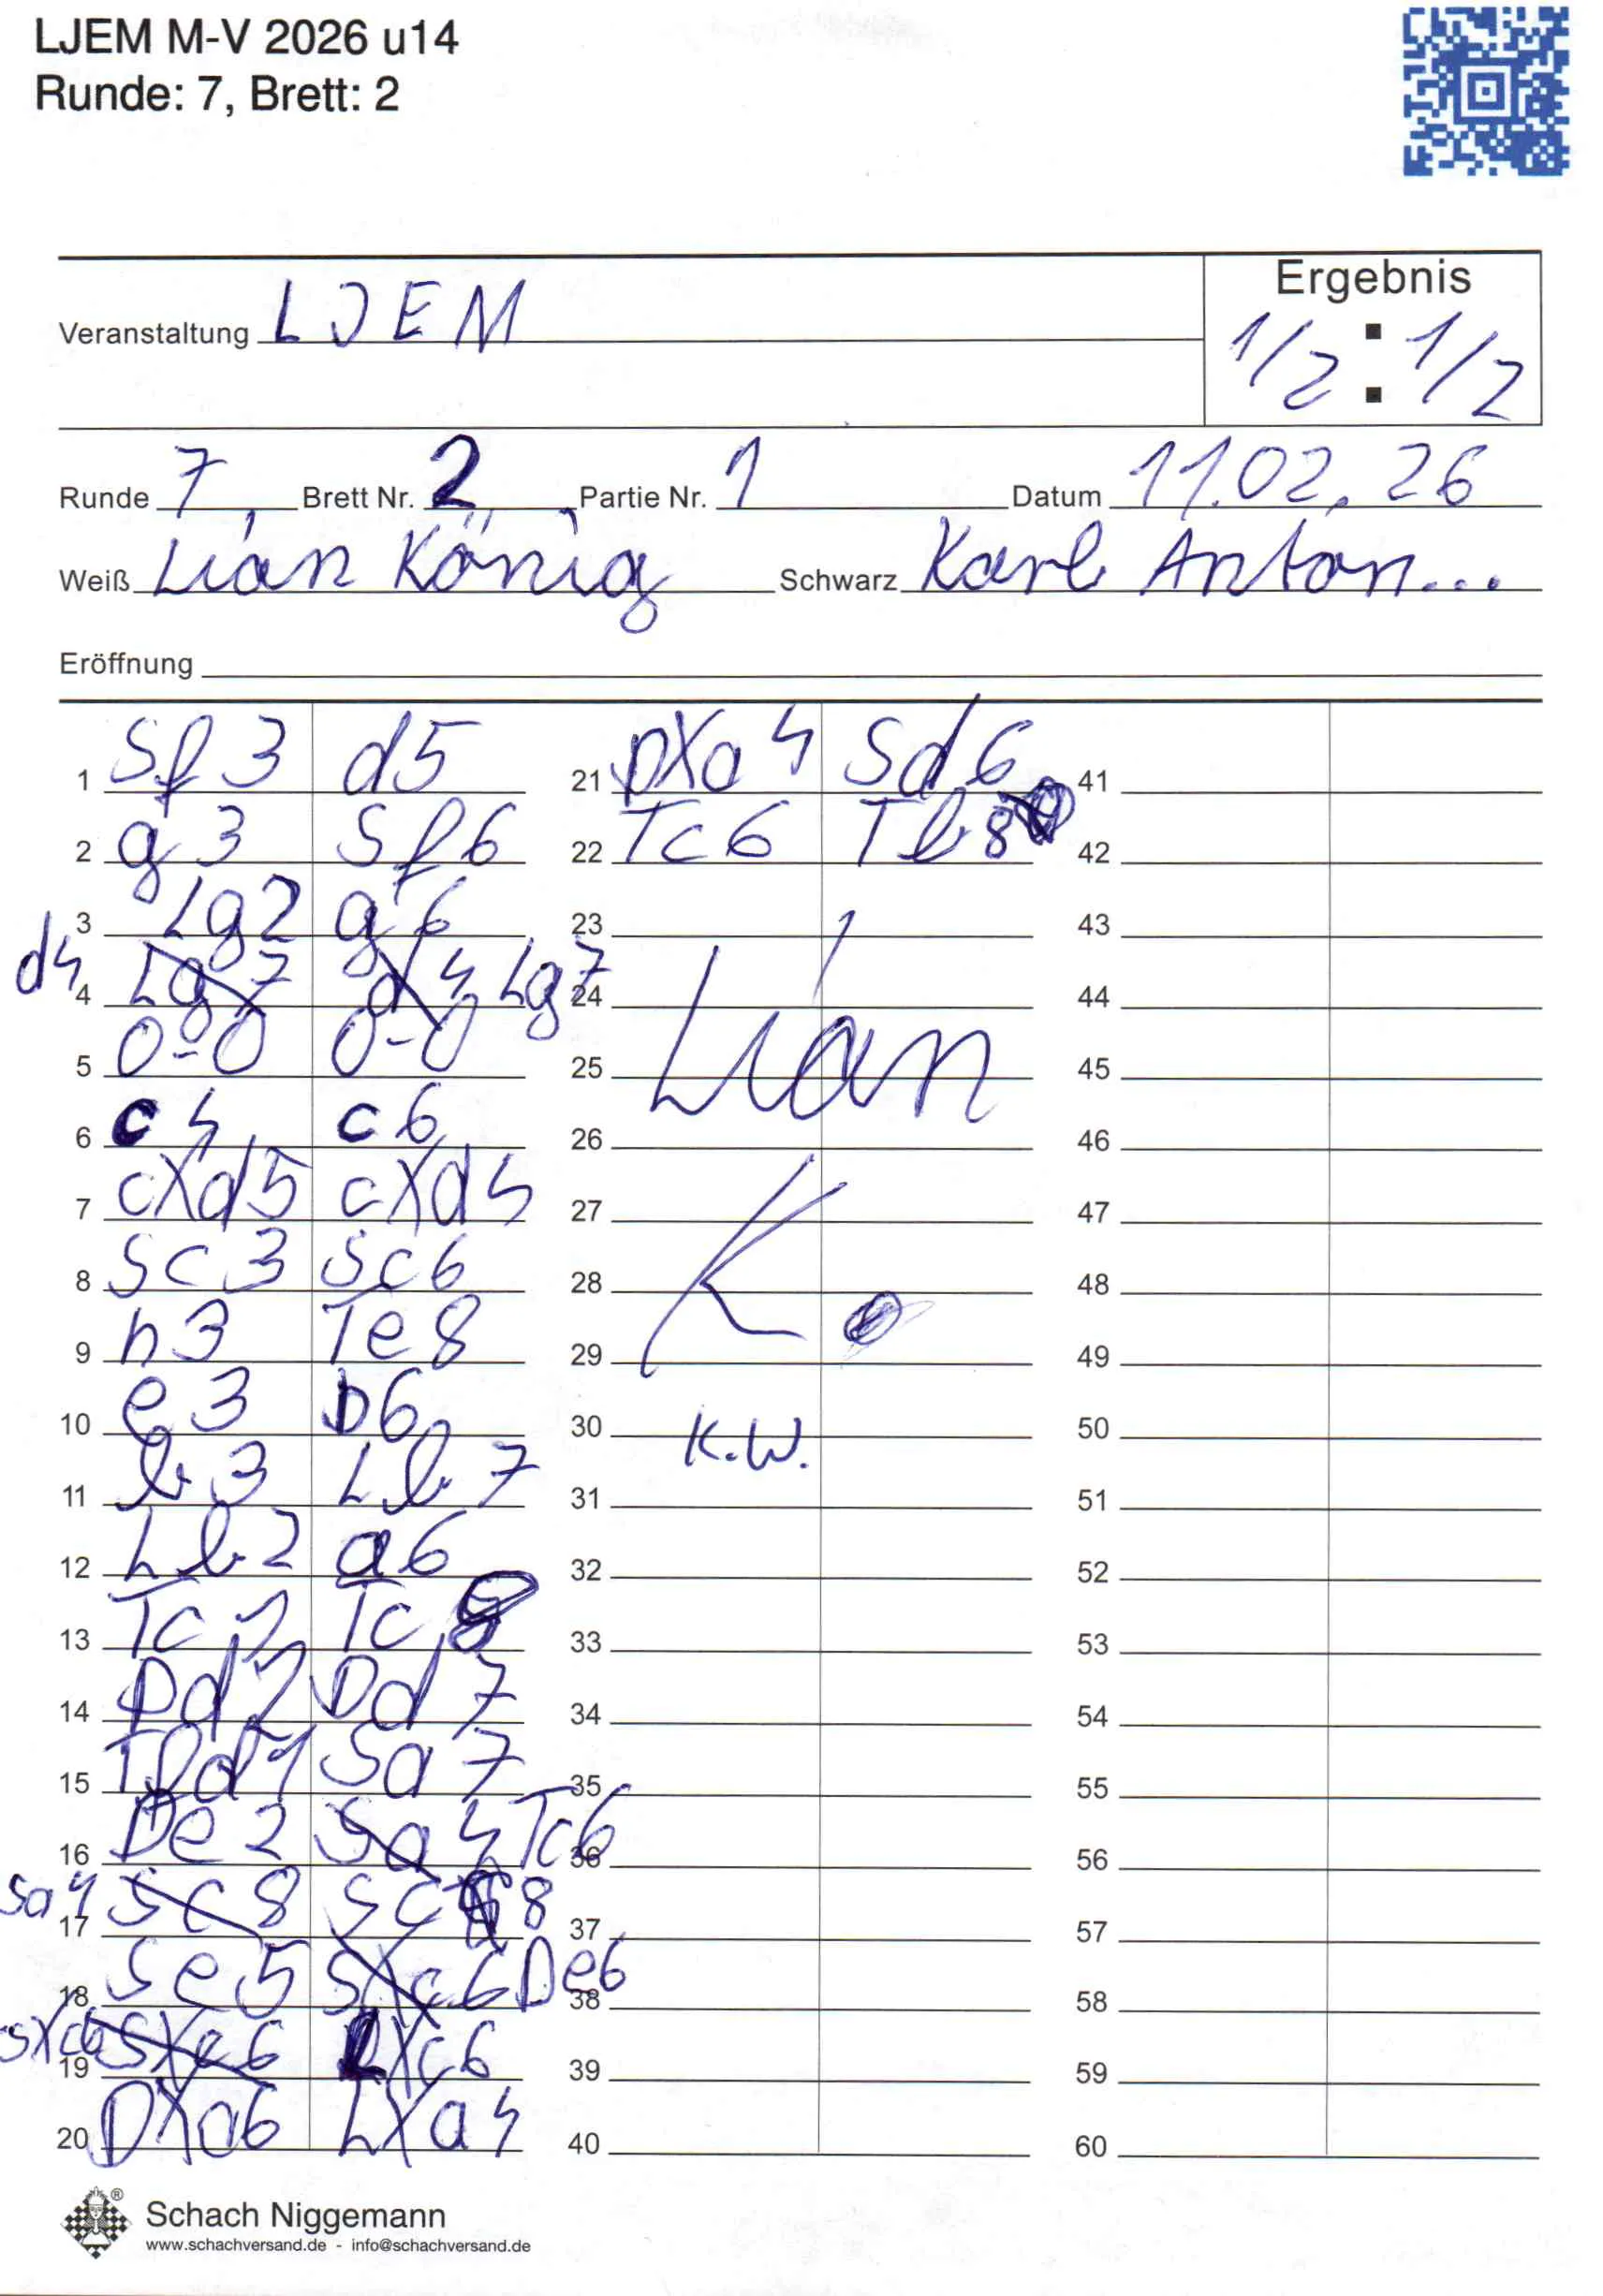 LJEM M-V 2026 u14
Runde: 7, Brett: 2
Ergebnis
Veranstaltung LJEM
1/2 : 1/2
Runde 7 Brett Nr. 2 Partie Nr. 1 Datum 11.02.26
Weiß Lian König Schwarz Karl Anton...
Eröffnung
1 Sf3 d5
2 g3 Sf6
3 Lg2 g6
4 d4 Lg7 d4 Lg7
5 0-0 0-0
6 c4 c6
7 cXd5 cXd5
8 Sc3 Sc6
9 h3 Te8
10 e3 b6
11 b3 Lb7
12 Lb2 a6
13 Tc1 Tc8
14 Dd2 Dd7
15 Tfd1 Sa7
16 De2 Sa4 Tc6
17 Sa4 Sc8 Sc8
18 Se5 SXc6 De6
19 SXc6 SXc6 LXc6
20 DXa6 LXa4
21 DXa4 Sd6
22 Tc6 Tb8
23
24
25 Lian
26
27
28 K.
29
30 K.W.
31
32
33
34
35
36
37
38
39
40
41
42
43
44
45
46
47
48
49
50
51
52
53
54
55
56
57
58
59
60
®
Schach Niggemann
www.schachversand.de - info@schachversand.de